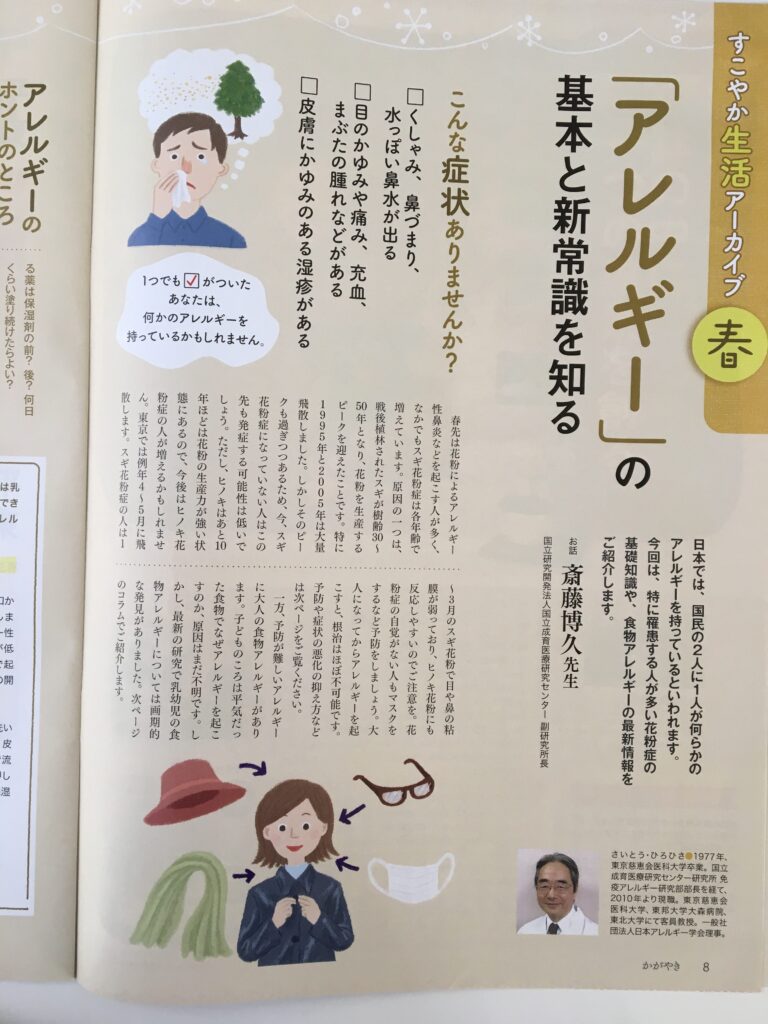 すこやか生活アーカイブ
春
「アレルギー」の
基本と新常識を知る
日本では、国民の2人に1人が何らかの
アレルギーを持っているといわれます。
今回は、特に罹患する人が多い花粉症の
基礎知識や、食物アレルギーの最新情報を
ご紹介します。
お話 斎藤博久先生
国立研究開発法人国立成育医療研究センター 副研究所長
こんな症状ありませんか?
□くしゃみ、鼻づまり、
水っぽい鼻水が出る
□目のかゆみや痛み、充血、
まぶたの腫れなどがある
□皮膚にかゆみのある湿疹がある
1つでも☑がついた
あなたは、
何かのアレルギーを
持っているかもしれません。
春先は花粉によるアレルギー
性鼻炎などを起こす人が多く、
なかでもスギ花粉症は各年齢で
増えています。原因の一つは、
戦後植林されたスギが樹齢30〜
50年となり、花粉を生産する
ピークを迎えたことです。特に
1995年と2005年は大量
飛散しました。しかしそのピー
クも過ぎつつあるため、今、スギ
花粉症になっていない人はこの
先も発症する可能性は低いで
しょう。ただし、ヒノキはあと10
年ほどは花粉の生産力が強い状
態にあるので、今後はヒノキ花
粉症の人が増えるかもしれませ
ん。東京では例年4〜5月に飛
散します。スギ花粉症の人は1
〜3月のスギ花粉で目や鼻の粘
膜が弱っており、ヒノキ花粉にも
反応しやすいのでご注意を。花
粉症の自覚がない人もマスクを
するなど予防をしましょう。大
人になってからアレルギーを起
こすと、根治はほぼ不可能です。
予防や症状の悪化の抑え方など
は次ページをご覧ください。
一方、予防が難しいアレルギー
に大人の食物アレルギーがあり
ます。子どものころは平気だっ
た食物でなぜアレルギーを起こ
すのか、原因はまだ不明です。し
かし、最新の研究で乳幼児の食
物アレルギーについては画期的
な発見がありました。次ページ
のコラムでご紹介します。
さいとう・ひろひさ●1977年、
東京慈恵会医科大学卒業。国立
成育医療研究センター研究所 免
疫アレルギー研究部部長を経て、
2010年より現職。東京慈恵会
医科大学、東邦大学大森病院、
東北大学にて客員教授。一般社
団法人日本アレルギー学会理事。
かがやき 8
アレルギーの
ホントのところ
る薬は保湿剤の前?後?何日
くらい塗り続けたらよい?
は乳
でき
レル